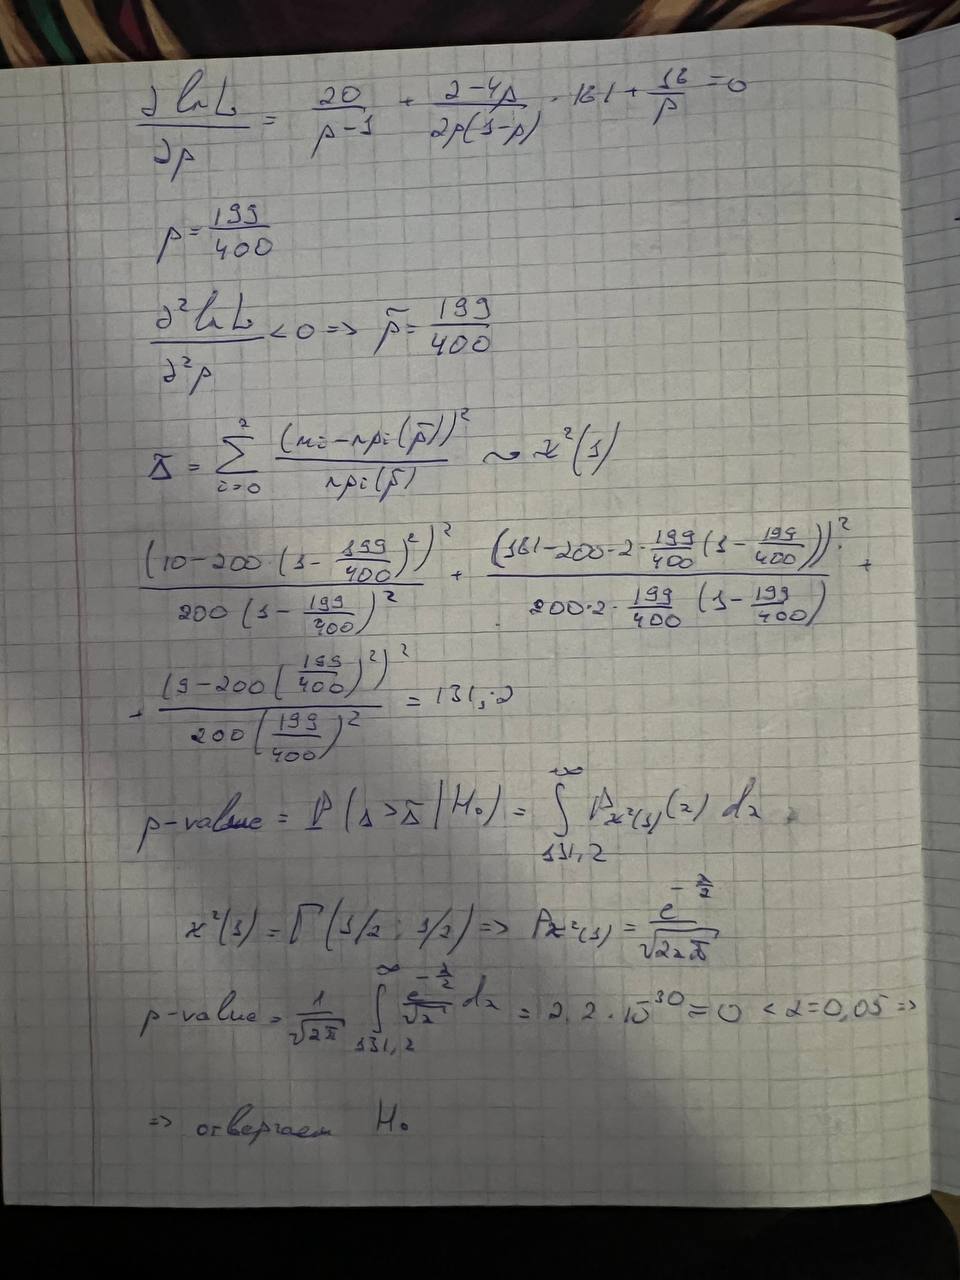 ∂ ln L / ∂p = 20/(p-1) + (2-4p)/(2p(1-p)) · 181 + 18/p = 0
p = 199/400
∂² ln L / ∂²p < 0 => p̃ = 199/400
Δ̃ = Σ_{i=0}^{2} (n_i - np_i(p̃))² / np_i(p̃) ~ χ²(1)
(10 - 200·(1 - 199/400)²)² / 200(1 - 199/400)² + (181 - 200·2·199/400 (1 - 199/400))² / 200·2·199/400 (1 - 199/400) +
+ (9 - 200(199/400)²)² / 200(199/400)² = 131,2
p-value = P(Δ > Δ̃ | H₀) = ∫_{131,2}^{∞} P_{χ²(1)}(x) dx
χ²(1) = Γ(1/2; 1/2) => P_{χ²(1)} = e^{-x/2} / √(2xπ)
p-value = 1/√(2π) ∫_{131,2}^{∞} e^{-x/2}/√x dx = 2,2·10^{-30} = 0 < α = 0,05 =>
=> отвергаем H₀